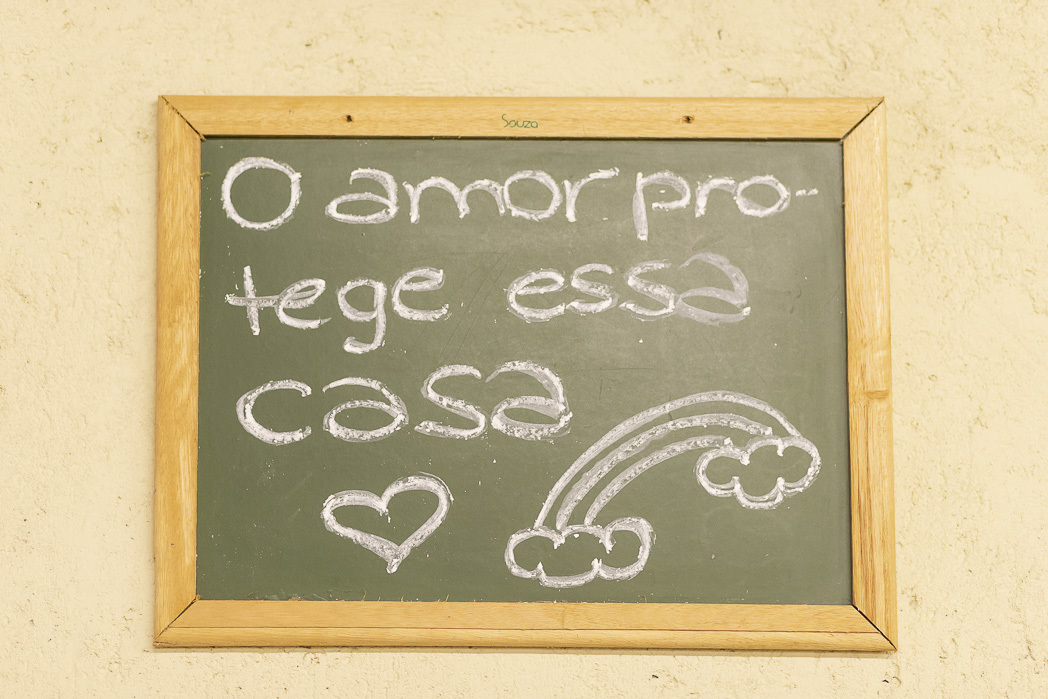 Souza
O amor pro-
tege essa
casa